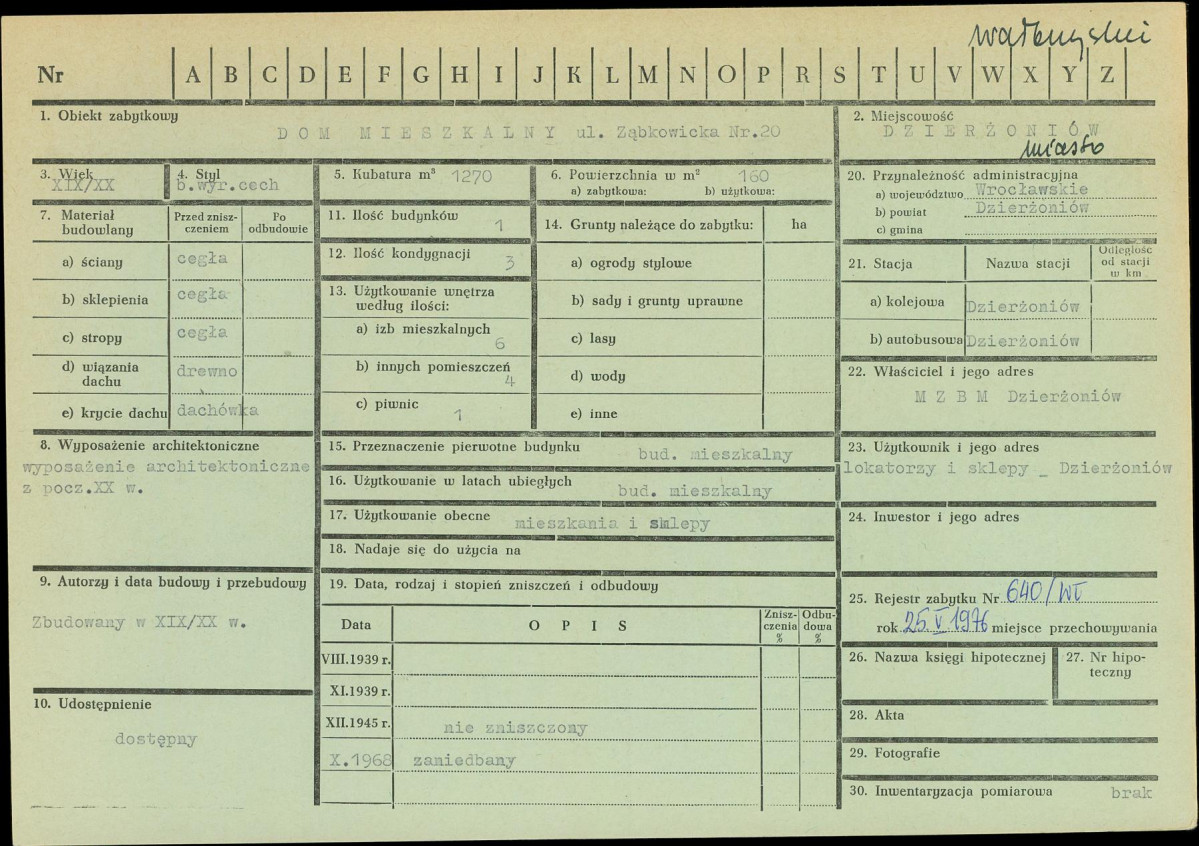 wałbrzyski
Nr A B C D E F G H I J K L M N O P R S T U V W X Y Z
1. Obiekt zabytkowy
D O M M I E S Z K A L N Y ul. Ząbkowicka Nr.20
2. Miejscowość
D Z I E R Ż O N I Ó W
miasto
3. Wiek
XIX/XX
4. Styl
b.wyr.cech
5. Kubatura m³ 1270
6. Powierzchnia w m² 160
a) zabytkowa: b) użytkowa:
20. Przynależność administracyjna
a) województwo Wrocławskie
b) powiat Dzierżoniów
c) gmina
7. Materiał budowlany
Przed zniszczeniem
Po odbudowie
a) ściany cegła
b) sklepienia cegła
c) stropy cegła
d) wiązania dachu drewno
e) krycie dachu dachówka
11. Ilość budynków 1
12. Ilość kondygnacji 3
13. Użytkowanie wnętrza według ilości:
a) izb mieszkalnych 6
b) innych pomieszczeń 4
c) piwnic 1
14. Grunty należące do zabytku: ha
a) ogrody stylowe
b) sady i grunty uprawne
c) lasy
d) wody
e) inne
21. Stacja Nazwa stacji Odległość od stacji w km
a) kolejowa Dzierżoniów
b) autobusowa Dzierżoniów
22. Właściciel i jego adres
M Z B M Dzierżoniów
8. Wyposażenie architektoniczne
wyposażenie architektoniczne
z pocz.XX w.
15. Przeznaczenie pierwotne budynku bud. mieszkalny
16. Użytkowanie w latach ubiegłych bud. mieszkalny
17. Użytkowanie obecne mieszkania i sklepy
18. Nadaje się do użycia na
23. Użytkownik i jego adres
lokatorzy i sklepy _ Dzierżoniów
24. Inwestor i jego adres
9. Autorzy i data budowy i przebudowy
Zbudowany w XIX/XX w.
19. Data, rodzaj i stopień zniszczeń i odbudowy
Data O P I S Zniszczenia % Odbudowa %
VIII.1939 r.
XI.1939 r.
XII.1945 r. nie zniszczony
X.1968 zaniedbany
25. Rejestr zabytku Nr 640/Wł
rok 25 V 1976 miejsce przechowywania
26. Nazwa księgi hipotecznej
27. Nr hipoteczny
10. Udostępnienie
dostępny
28. Akta
29. Fotografie
30. Inwentaryzacja pomiarowa brak